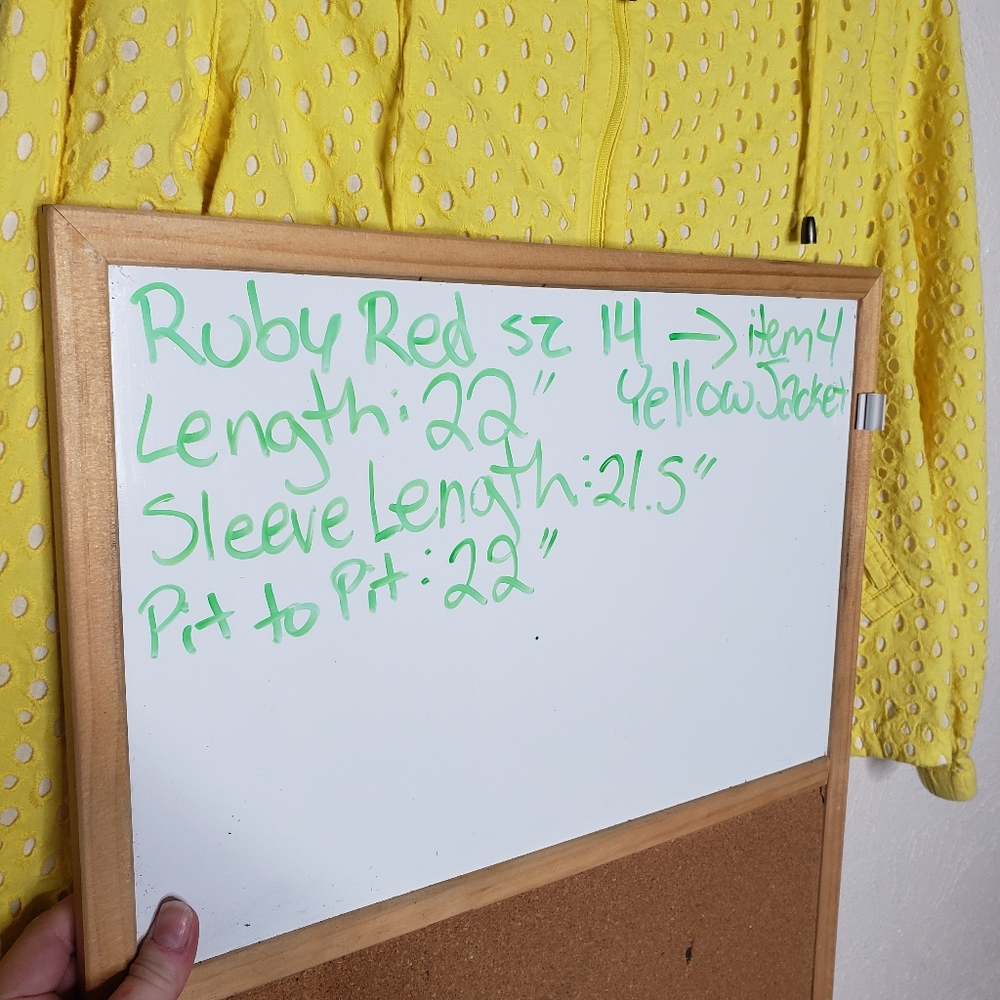 Ruby Red sz 14 → item 4
Yellow Jacket
Length: 22"
Sleeve Length: 21.5"
Pit to Pit: 22"